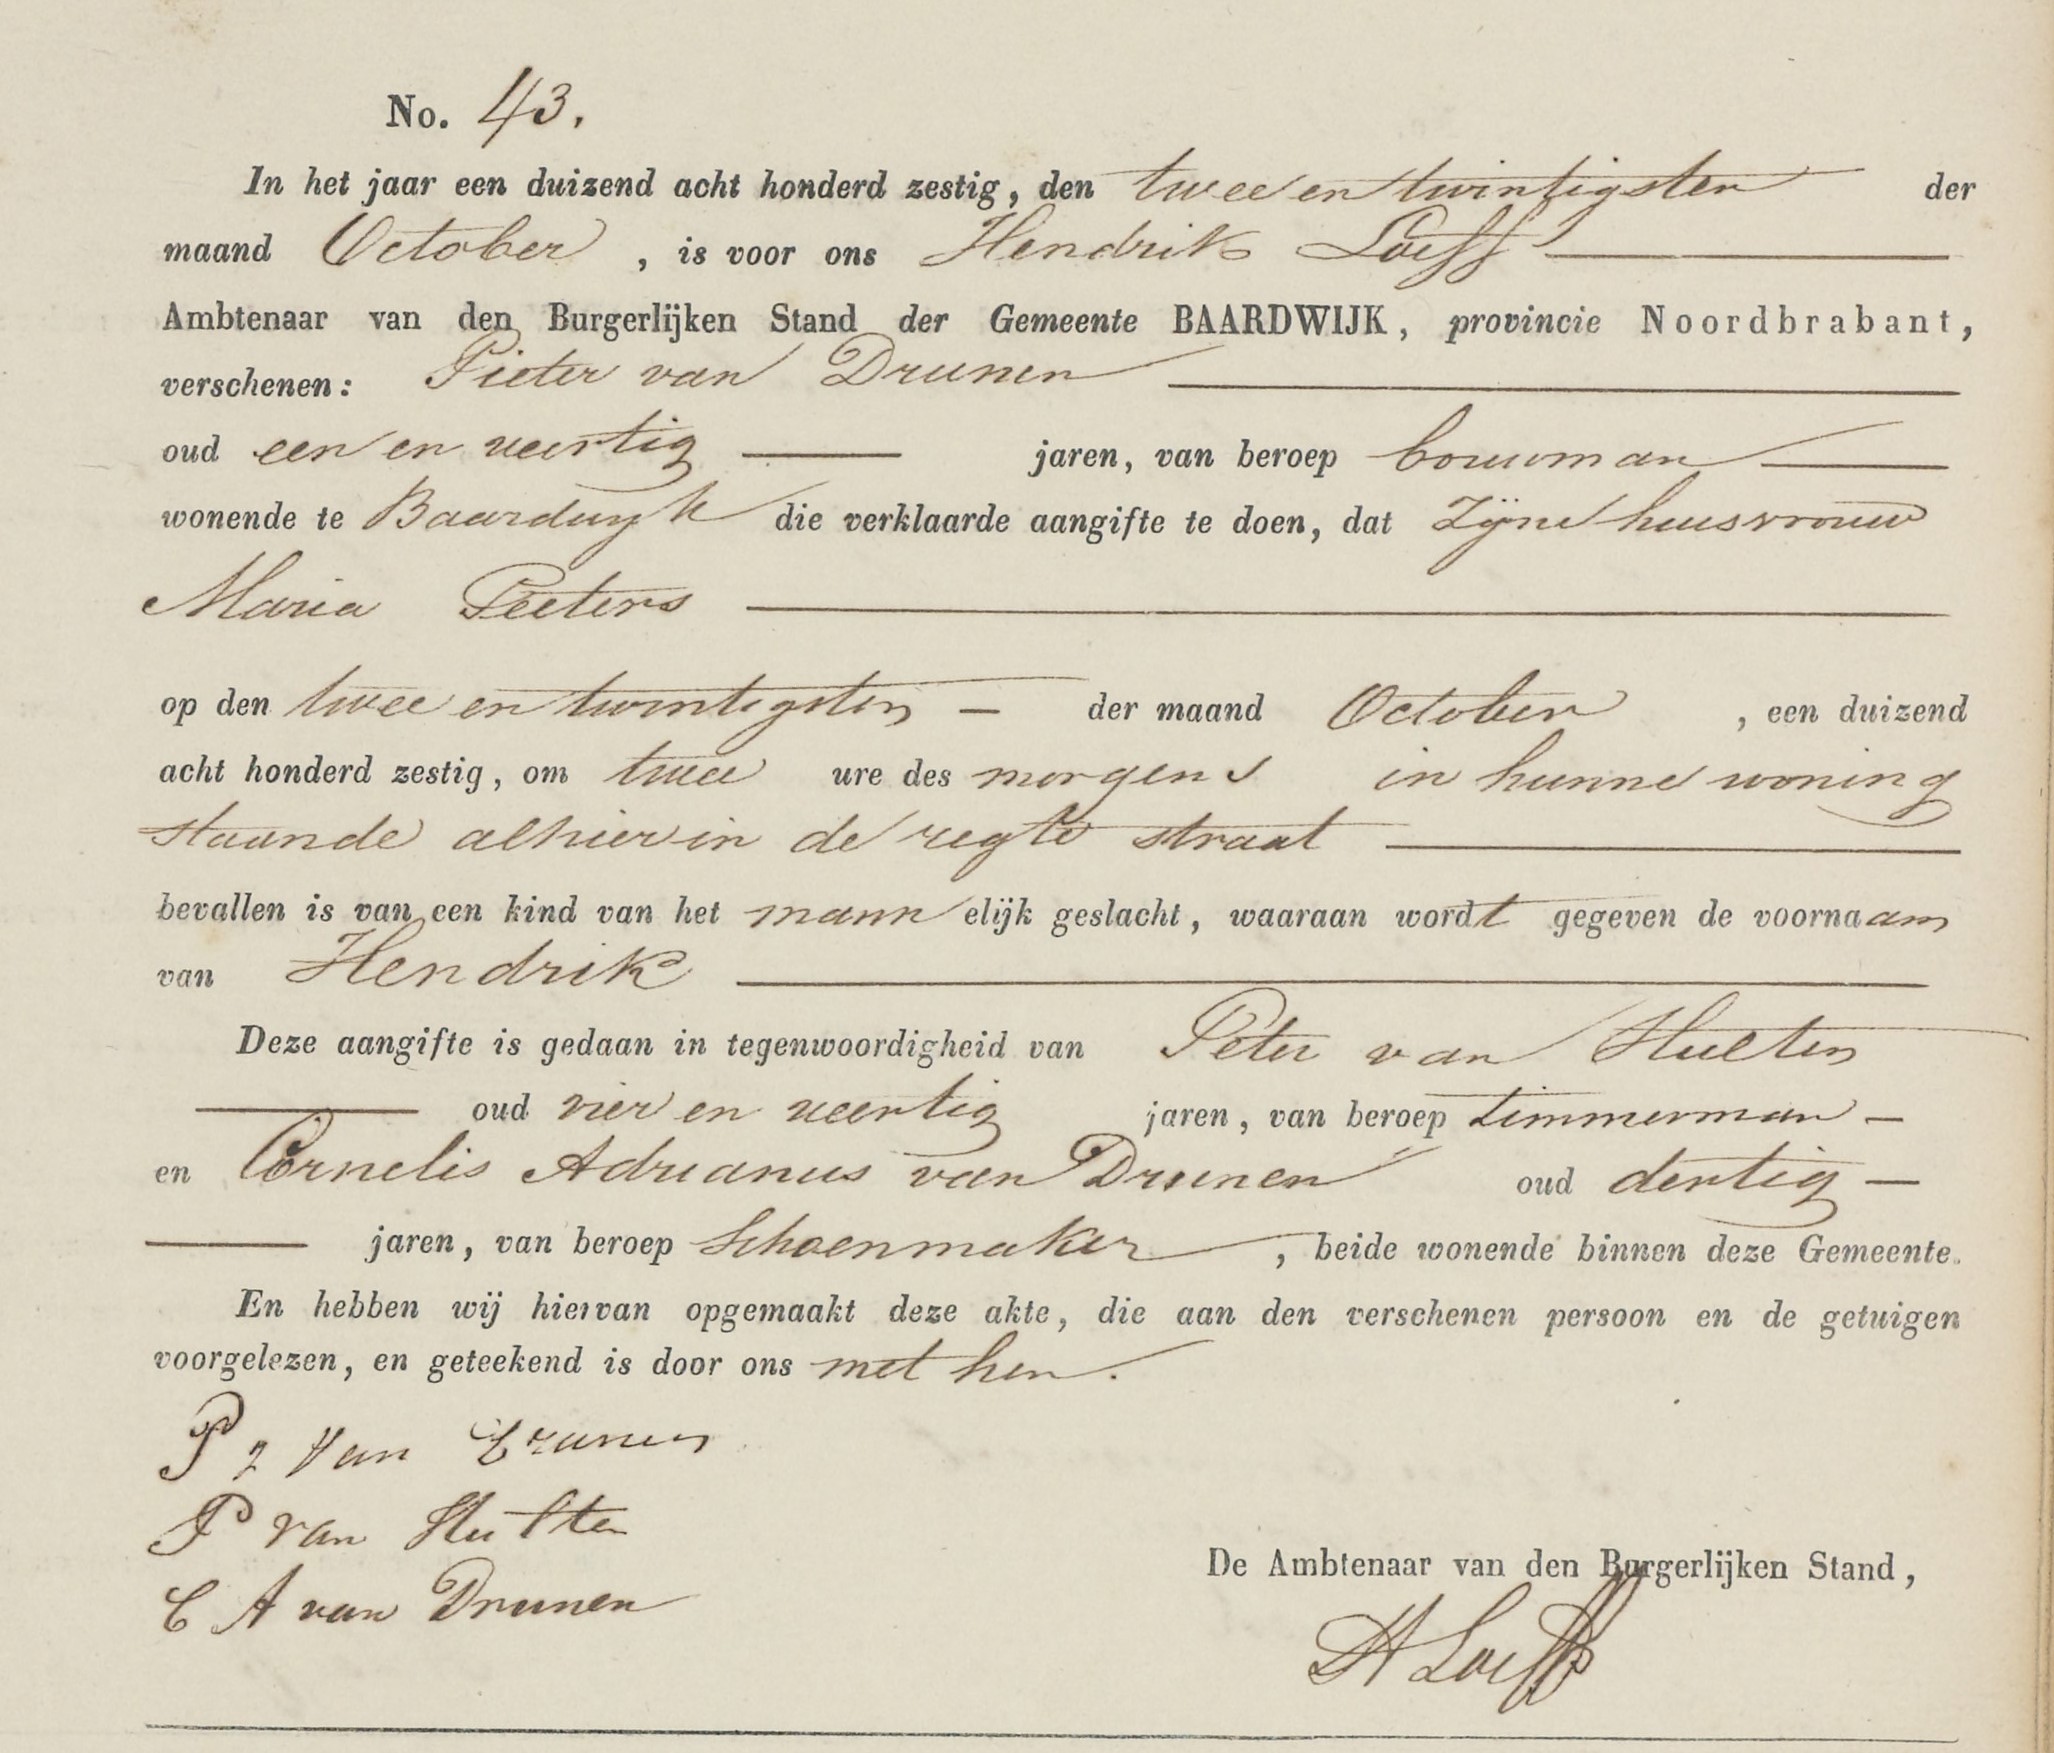 No. 43.
In het jaar een duizend acht honderd zestig, den twee en twintigsten der
maand October, is voor ons Hendrik Loeff
Ambtenaar van den Burgerlijken Stand der Gemeente BAARDWIJK, provincie Noordbrabant,
verschenen: Pieter van Drunen
oud een en veertig jaren, van beroep bouwman
wonende te Baardwyk die verklaarde aangifte te doen, dat Zijne huisvrouw
Maria Peeters
op den twee en twintigsten der maand October, een duizend
acht honderd zestig, om twee ure des morgens in hunne woning
staande alhier in de regte straat
bevallen is van een kind van het mannelijk geslacht, waaraan wordt gegeven de voornaam
van Hendrik
Deze aangifte is gedaan in tegenwoordigheid van Peter van Hulten
oud vier en veertig jaren, van beroep timmerman
en Cornelis Adrianus van Drunen oud dertig
jaren, van beroep Schoenmaker, beide wonende binnen deze Gemeente.
En hebben wij hiervan opgemaakt deze akte, die aan den verschenen persoon en de getuigen
voorgelezen, en geteekend is door ons met hen.
P z van Drunen
P van Hulten
C A van Drunen
De Ambtenaar van den Burgerlijken Stand,
H Loeff